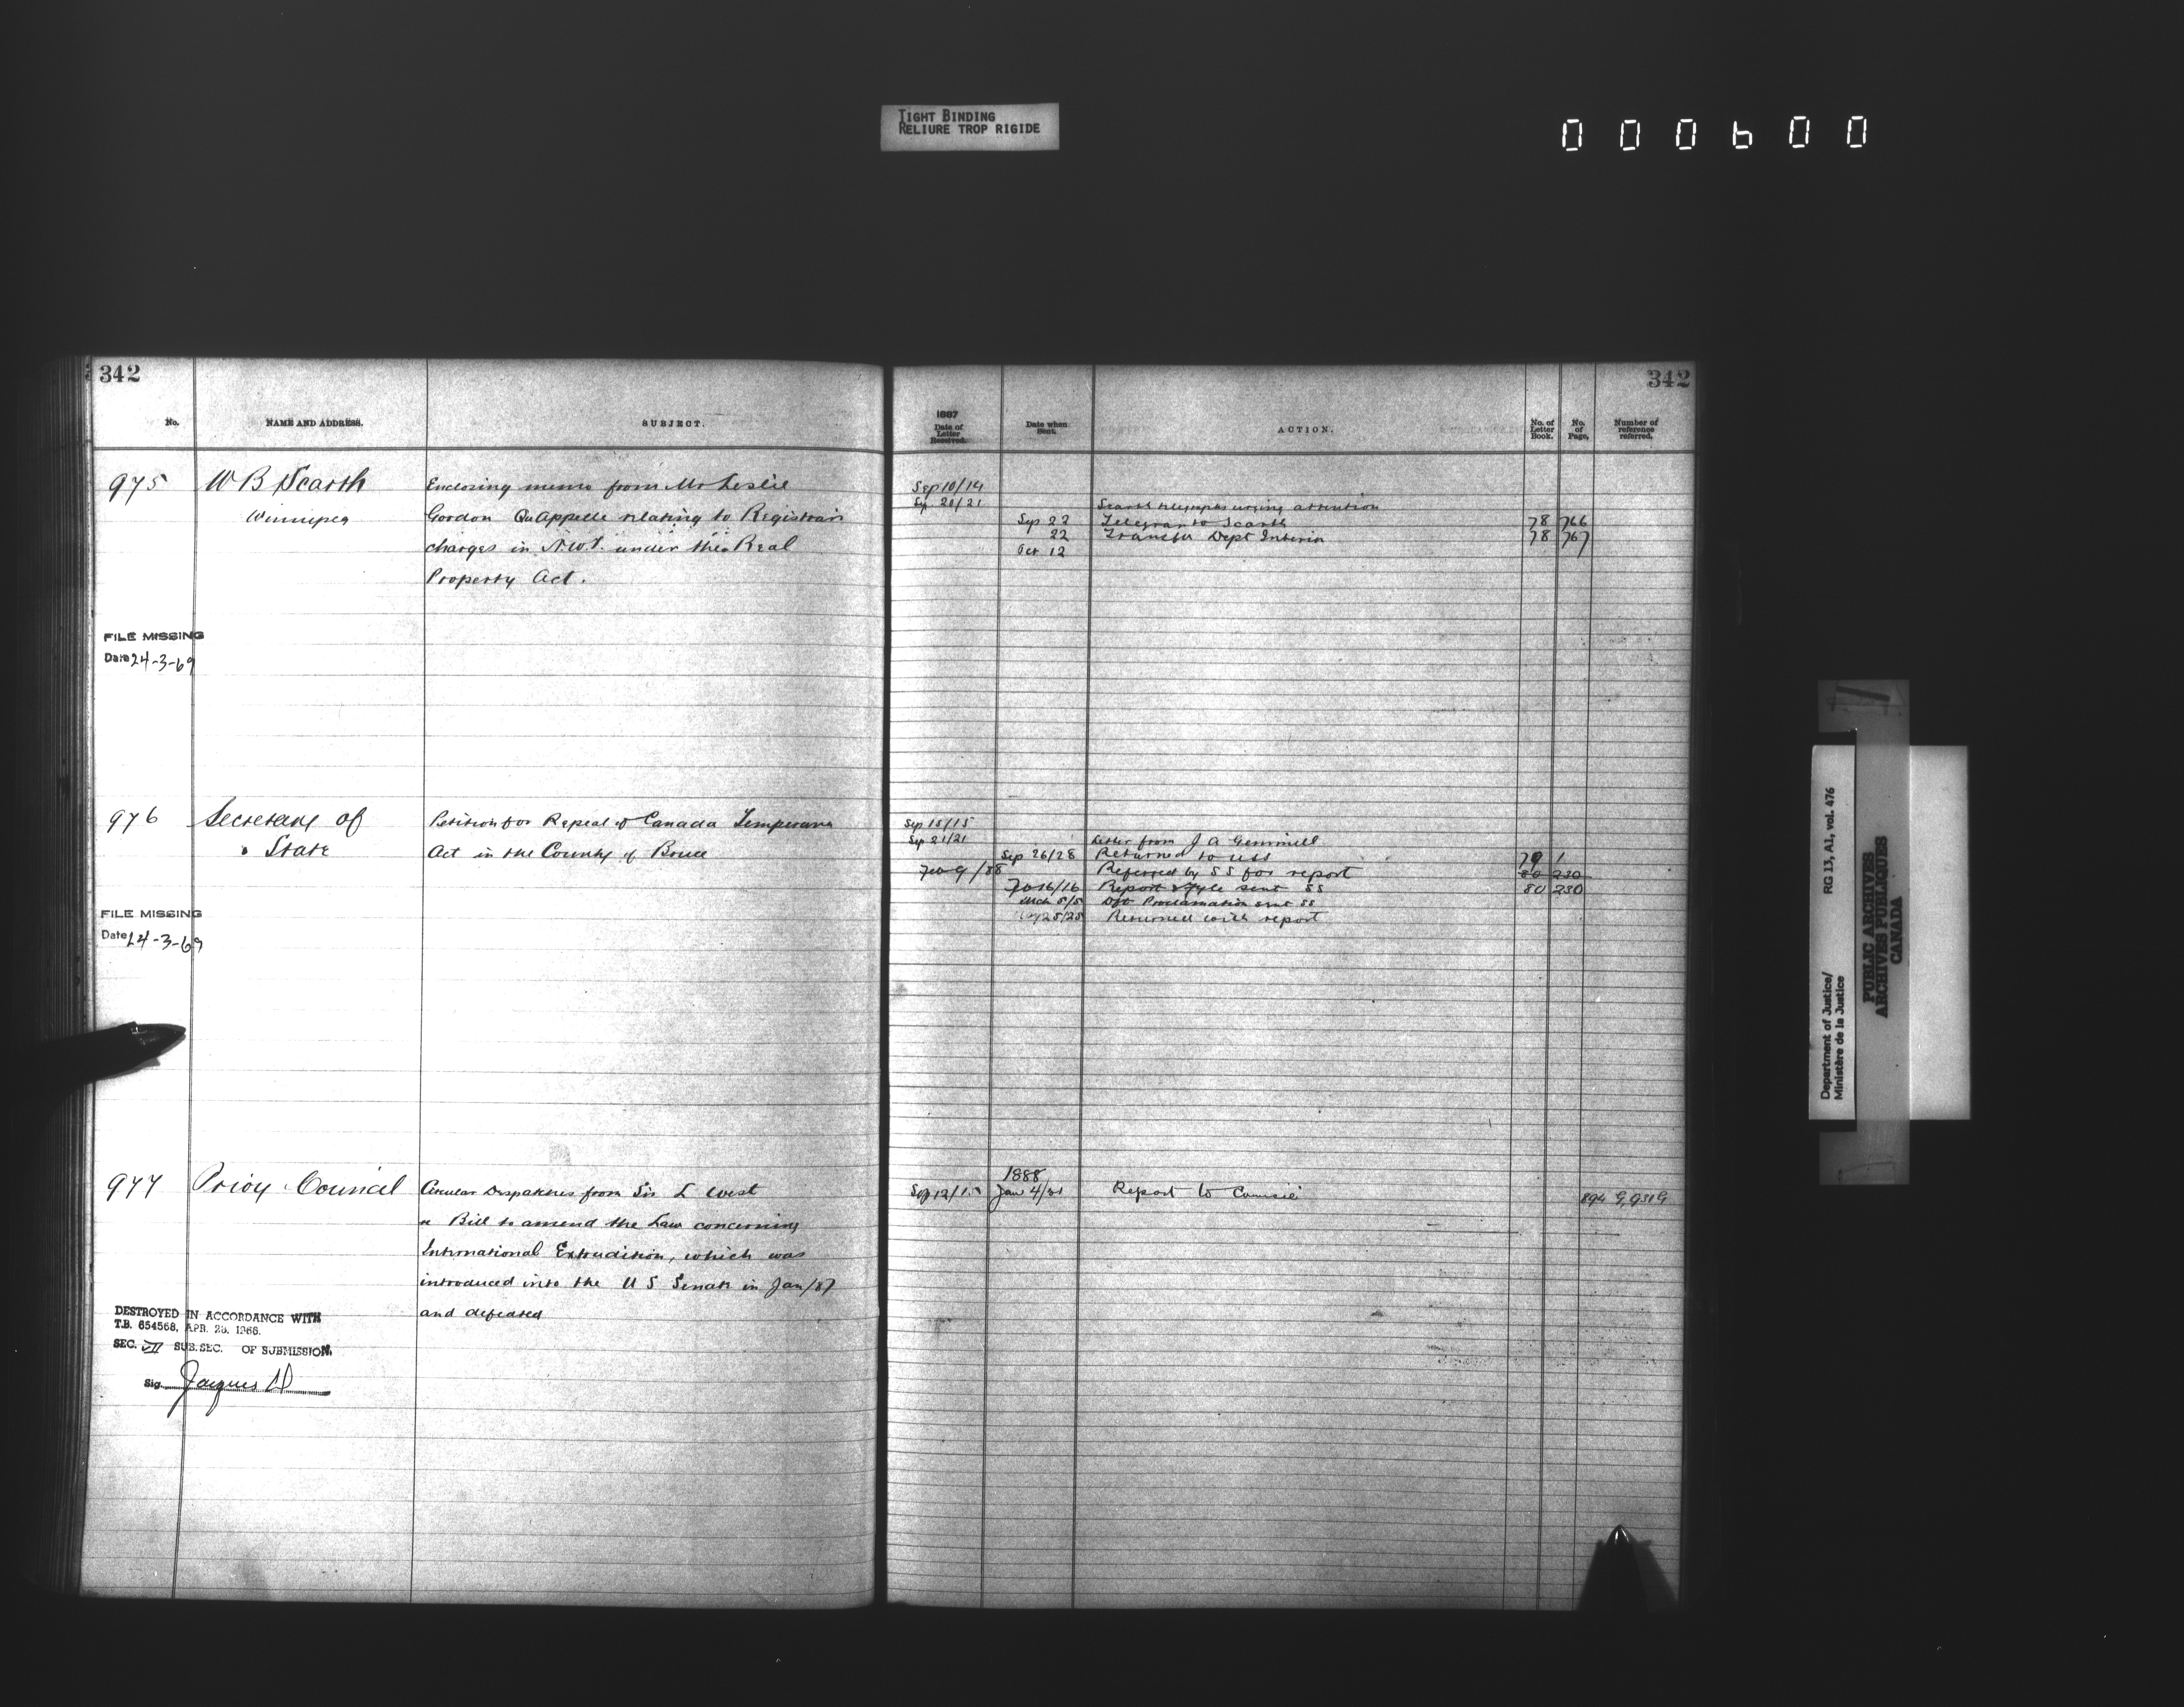 TIGHT BINDING
RELIURE TROP RIGIDE
000600
342
No.
NAME AND ADDRESS.
SUBJECT.
975
W B Scarth
Winnipeg
Enclosing memo from Mr Leslie
Gordon QuAppelle relating to Registrars
charges in N.W.T. under the Real
Property Act.
FILE MISSING
Date 24-3-69
976
Secretary of
State
Petition for Repeal of Canada Temperance
Act in the County of Bruce
FILE MISSING
Date 24-3-69
977
Privy Council
Circular Despatches from Sir L West
a Bill to amend the Law concerning
International Extradition, which was
introduced into the U S Senate in Jan/87
and defeated
DESTROYED IN ACCORDANCE WITH
T.B. 654568, APR. 28. 1966.
SEC. VII SUB.SEC. OF SUBMISSION.
Sig. Jacques
342
1887
Date of
Letter
Received.
Date when
Sent.
ACTION.
No. of
Letter
Book.
No.
of
Page.
Number of
reference
referred.
Sep 10/14
Sep 20/21 Scarth telegraphs urging attention
Sep 22 Telegram to Scarth 78 766
22 Transfer Dept Interior 78 767
Oct 12
Sep 15/15
Sep 21/21 Letter from J A Gemmill
Sep 26/28 Returned to USS 79 1
Feb 9/88 Referred by SS for report 80 230
Feb 16/16 Report & file sent SS 80 230
Mch 5/5 Dft Proclamation sent SS
25/25 Returned with report
1888
Sep 12/15 Jan 4/31 Report to Council 894 G, 931 G
Department of Justice/
Ministère de la Justice
RG 13, A1, vol. 476
PUBLIC ARCHIVES
ARCHIVES PUBLIQUES
CANADA